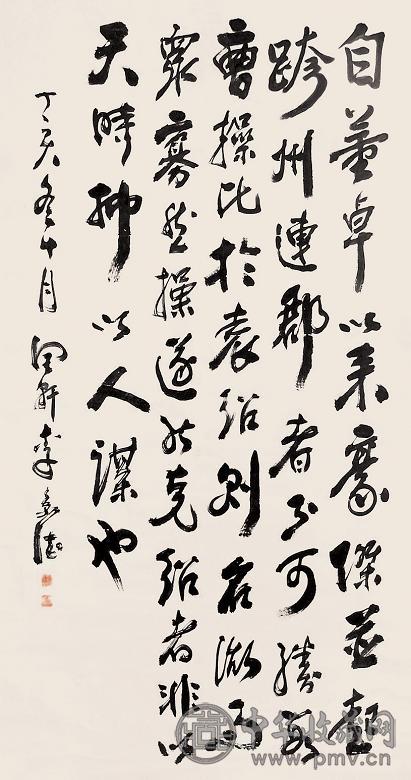 自董卓以来豪傑並起
跨州連郡者不可勝數
曹操比於袁紹則名微而
眾寡然操遂能克紹者非唯
天時抑以人謀也
丁亥冬十月 軒李
中华收藏网
www.pmv.cn